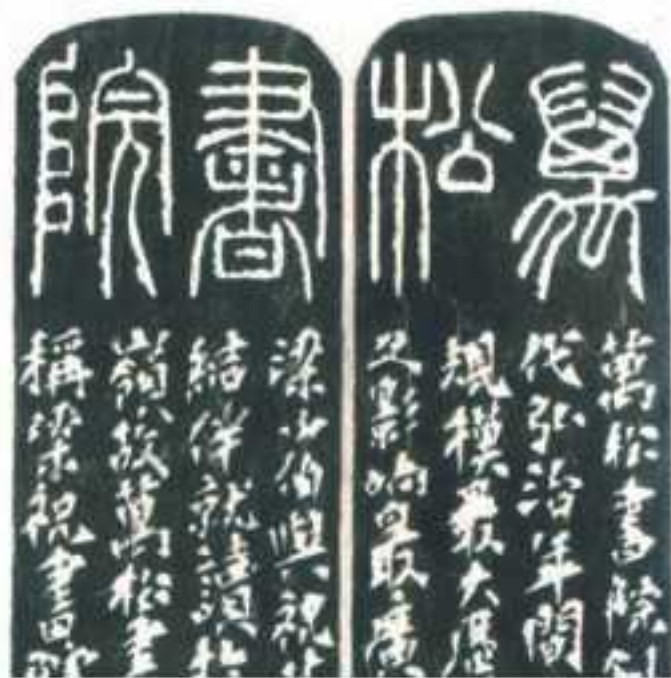 萬松
書院
萬松書院
代弘治年間
規模最大歷
及影响最廣
梁山伯與祝
結伴就讀於
嶺故萬松書
稱梁祝書院